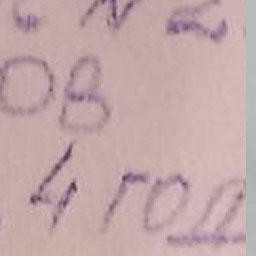 № 2
ОВ
4 год